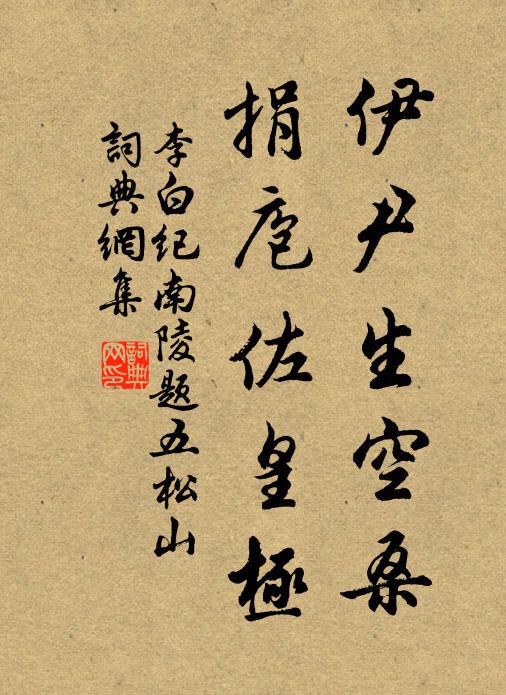 伊尹生空桑
捐庖佐皇極
李白纪南陵题五松山
詞典網集
詞典
网印